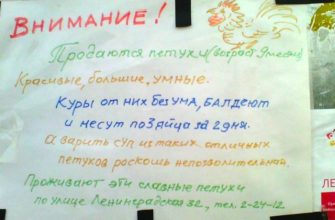 ВНИМАНИЕ!
Продаются петухи (возраст 9 месяц)
Красивые, большие, умные.
Куры от них без ума, БАЛДЕЮТ
и несут по 3 яйца за 2 дня.
А варить суп из таких отличных
петухов роскошь непозволительная.
Проживают эти славные петухи
по улице Ленинградская 32, тел. 2-24-12.
ЛЕ